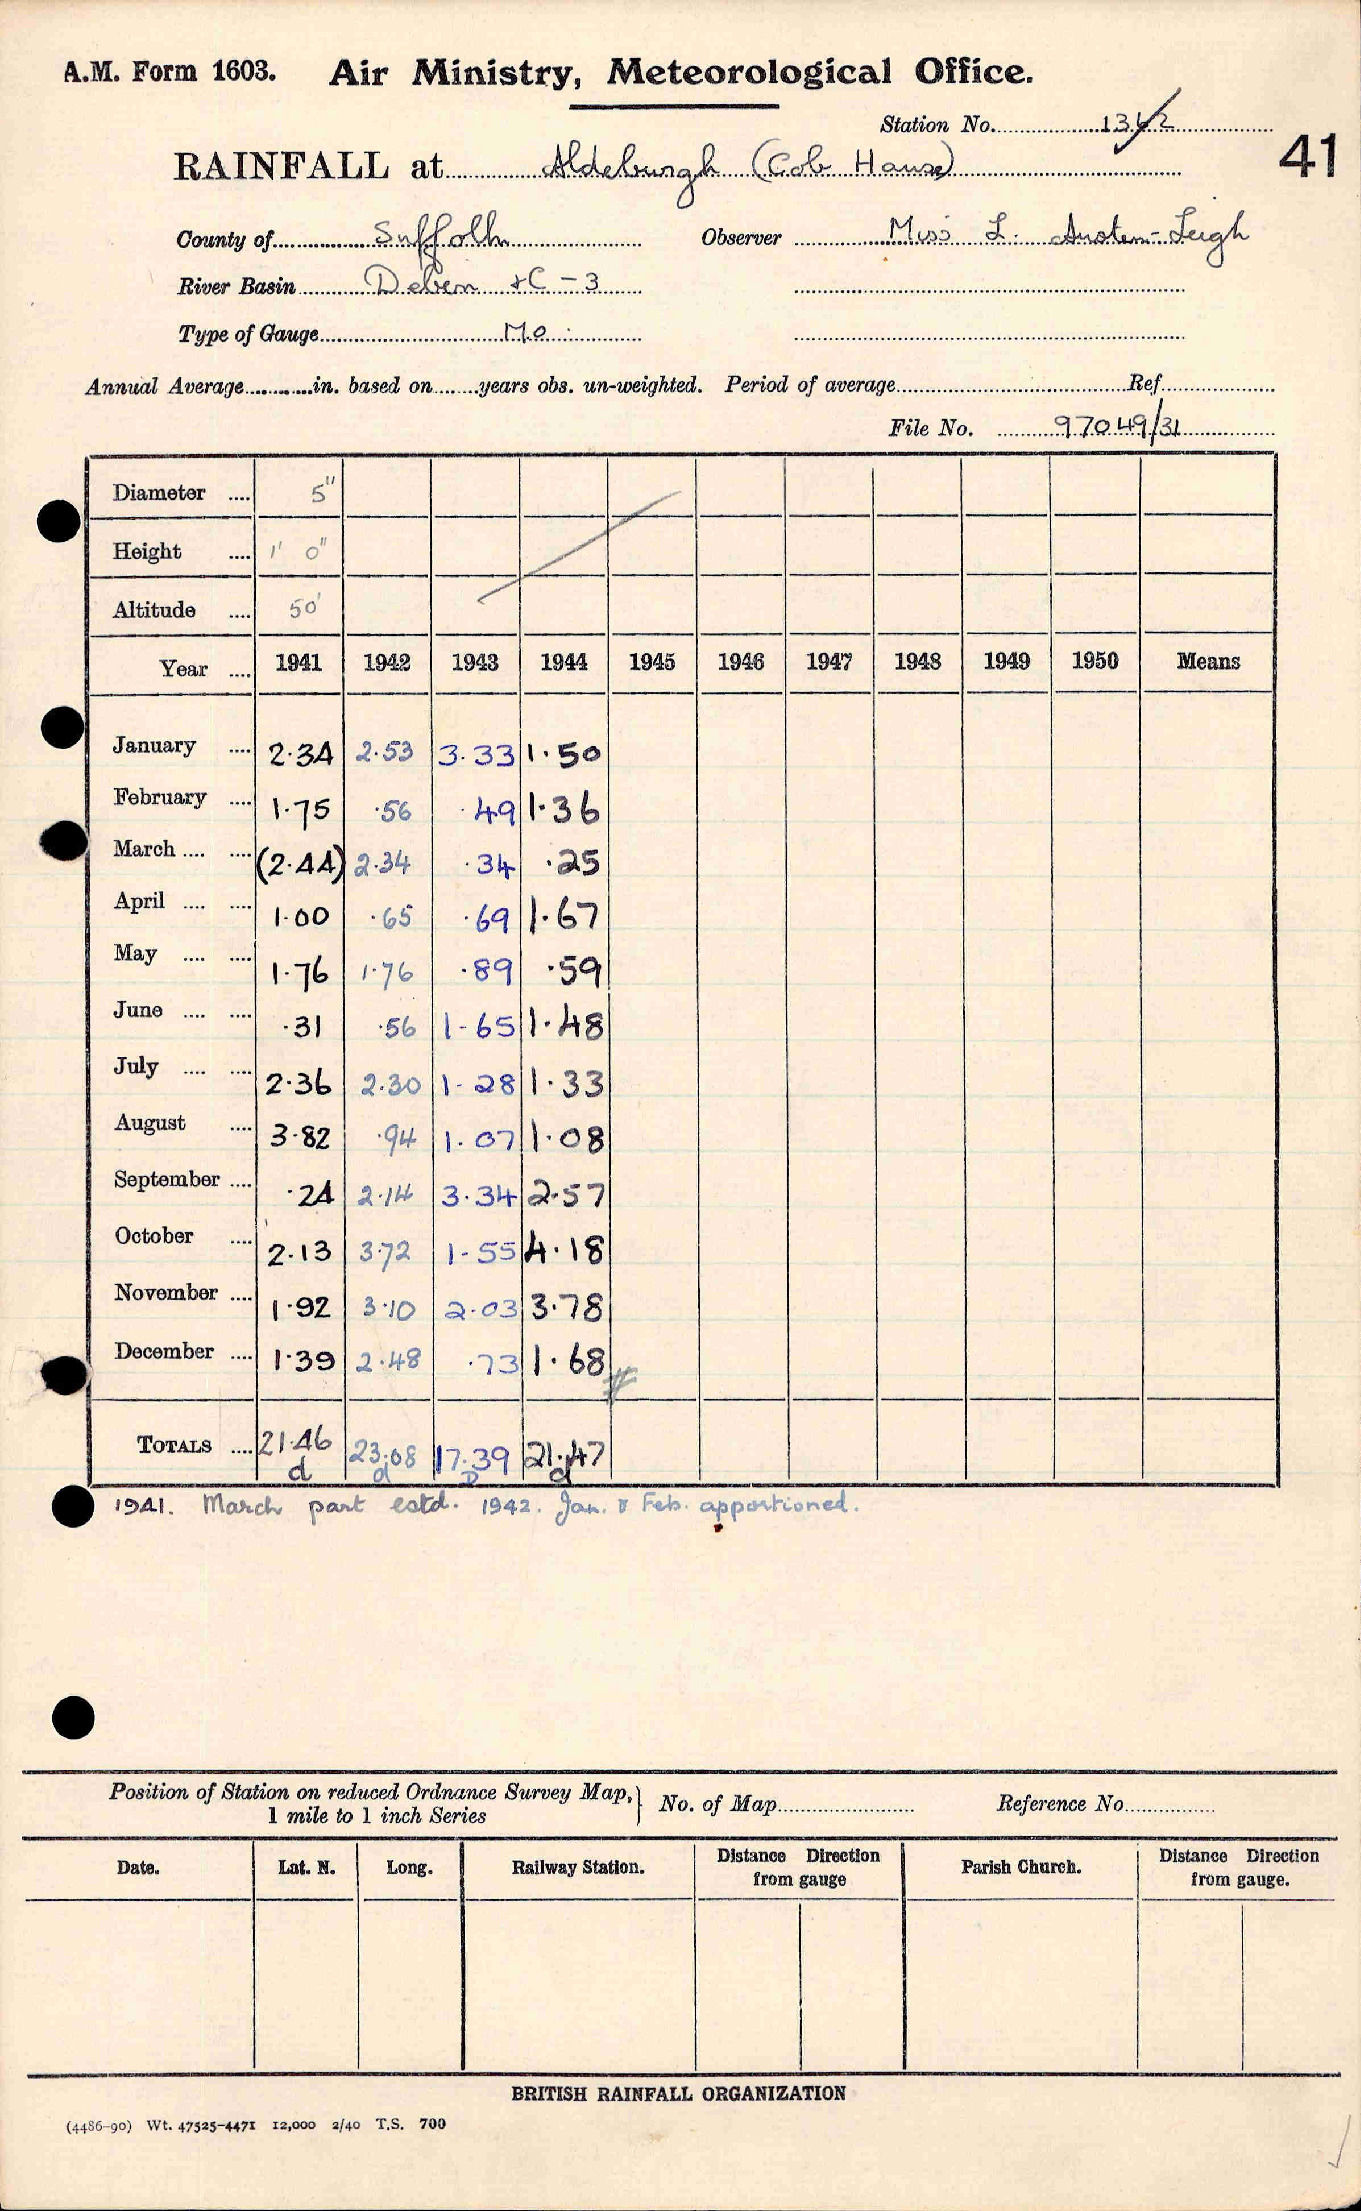 A.M. Form 1603. Air Ministry, Meteorological Office.
Station No. 1342
41
RAINFALL at Aldeburgh (Cob House)
County of Suffolk Observer Miss L. Austen-Leigh
River Basin Deben &C - 3
Type of Gauge M.O.
Annual Average in. based on years obs. un-weighted. Period of average Ref
File No. 97049/31
Diameter .... 5"
Height .... 1' 0"
Altitude .... 50'
Year .... 1941 1942 1943 1944 1945 1946 1947 1948 1949 1950 Means
January .... 2.34 2.53 3.33 1.50
February .... 1.75 .56 .49 1.36
March .... .... (2.44) 2.34 .34 .25
April .... .... 1.00 .65 .69 1.67
May .... .... 1.76 1.76 .89 .59
June .... .... .31 .56 1.65 1.48
July .... .... 2.36 2.30 1.28 1.33
August .... 3.82 .94 1.07 1.08
September .... .24 2.14 3.34 2.57
October .... 2.13 3.72 1.55 4.18
November .... 1.92 3.10 2.03 3.78
December .... 1.39 2.48 .73 1.68
TOTALS .... 21.46 23.08 17.39 21.47
d d D d
1941. March part estd. 1942. Jan. & Feb. apportioned.
Position of Station on reduced Ordnance Survey Map, 1 mile to 1 inch Series No. of Map Reference No.
Date. Lat. N. Long. Railway Station. Distance Direction from gauge Parish Church. Distance Direction from gauge.
BRITISH RAINFALL ORGANIZATION
(4486-90) Wt. 47525-4471 12,000 2/40 T.S. 700